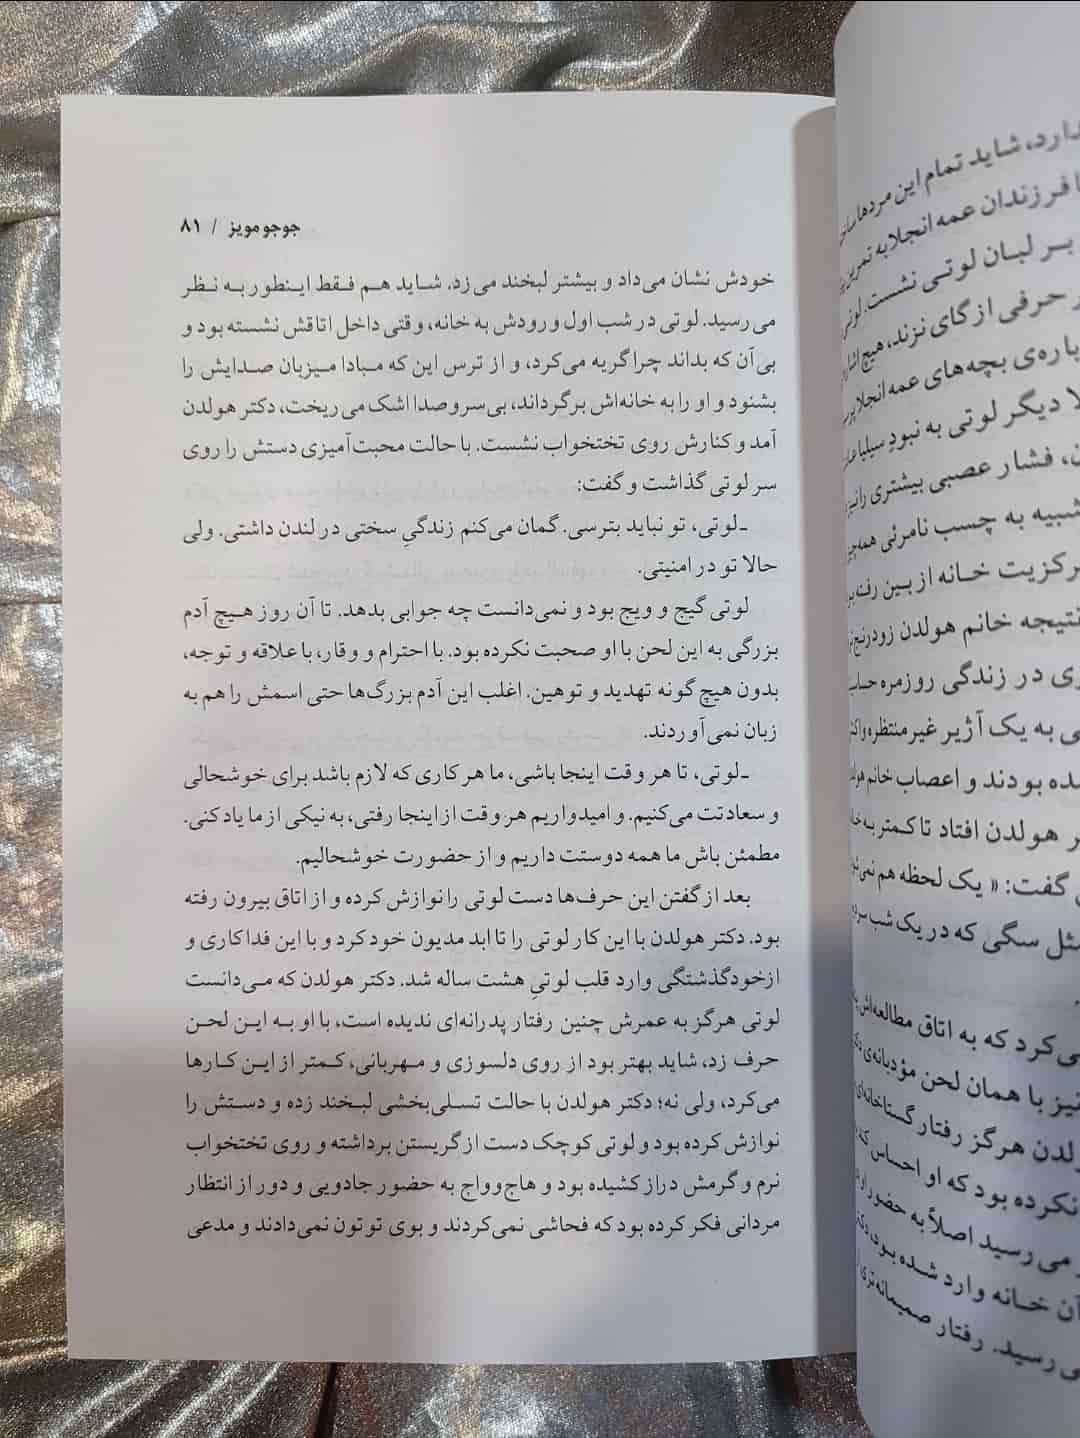 جوجو مویز / ۸۱
خودش نشان می‌داد و بیشتر لبخند می‌زد. شاید هم فقط اینطور به نظر
می رسید. لوتی در شب اول ورودش به خانه، وقتی داخل اتاقش نشسته بود و
بی‌آن که بداند چرا گریه می‌کرد، و از ترس این که مبادا میزبان صدایش را
بشنود و او را به خانه‌اش برگرداند، بی‌سروصدا اشک می‌ریخت، دکتر هولدن
آمد و کنارش روی تختخواب نشست. با حالت محبت‌آمیزی دستش را روی
سر لوتی گذاشت و گفت:
ـ لوتی، تو نباید بترسی. گمان می‌کنم زندگیِ سختی در لندن داشتی. ولی
حالا تو در امنیتی.
لوتی گیج و ویج بود و نمی‌دانست چه جوابی بدهد. تا آن روز هیچ آدم
بزرگی به این لحن با او صحبت نکرده بود. با احترام و وقار، با علاقه و توجه،
بدون هیچ گونه تهدید و توهین. اغلب این آدم بزرگ‌ها حتی اسمش را هم به
زبان نمی‌آوردند.
ـ لوتی، تا هر وقت اینجا باشی، ما هر کاری که لازم باشد برای خوشحالی
و سعادتت می‌کنیم. و امیدواریم هر وقت از اینجا رفتی، به نیکی از ما یاد کنی.
مطمئن باش ما همه دوستت داریم و از حضورت خوشحالیم.
بعد از گفتن این حرف‌ها دست لوتی را نوازش کرده و از اتاق بیرون رفته
بود. دکتر هولدن با این کار لوتی را تا ابد مدیون خود کرد و با این فداکاری و
ازخودگذشتگی وارد قلب لوتیِ هشت ساله شد. دکتر هولدن که می‌دانست
لوتی هرگز به عمرش چنین رفتار پدرانه‌ای ندیده است، با او به این لحن
حرف زد، شاید بهتر بود از روی دلسوزی و مهربانی، کمتر از این کارها
می‌کرد، ولی نه؛ دکتر هولدن با حالت تسلی‌بخشی لبخند زده و دستش را
نوازش کرده بود و لوتی کوچک دست از گریستن برداشته و روی تختخواب
نرم و گرمش دراز کشیده بود و هاج‌وواج به حضور جادویی و دور از انتظار
مردانی فکر کرده بود که فحاشی نمی‌کردند و بوی توتون نمی‌دادند و مدعی
شاید تمام این مردها
فرزندان عمه انجلا به
بر لبان لوتی نشست. لوتی
حرفی از گای نزند، هیچ
باره‌ی بچه‌های عمه انجلا
دیگر لوتی به نبودِ سیلیا
فشار عصبی بیشتری را نیز
شبیه به چسب نامرئی همه چیز
مرکزیت خانه از بین رفته
نتیجه خانم هولدن زودرنج
در زندگی روزمره
به یک آژیر غیرمنتظره
بودند و اعصاب خانم
هولدن افتاد تا کمتر به
گفت: « یک لحظه هم نمی
مثل سگی که در یک شب
می‌کرد که به اتاق مطالعه‌اش
نیز با همان لحن مؤدبانه‌ی
هرگز رفتار گستاخانه‌ای
نکرده بود که او احساس
می رسید اصلاً به حضور او
آن خانه وارد شده بود،
رسید. رفتار صمیمانه‌تری